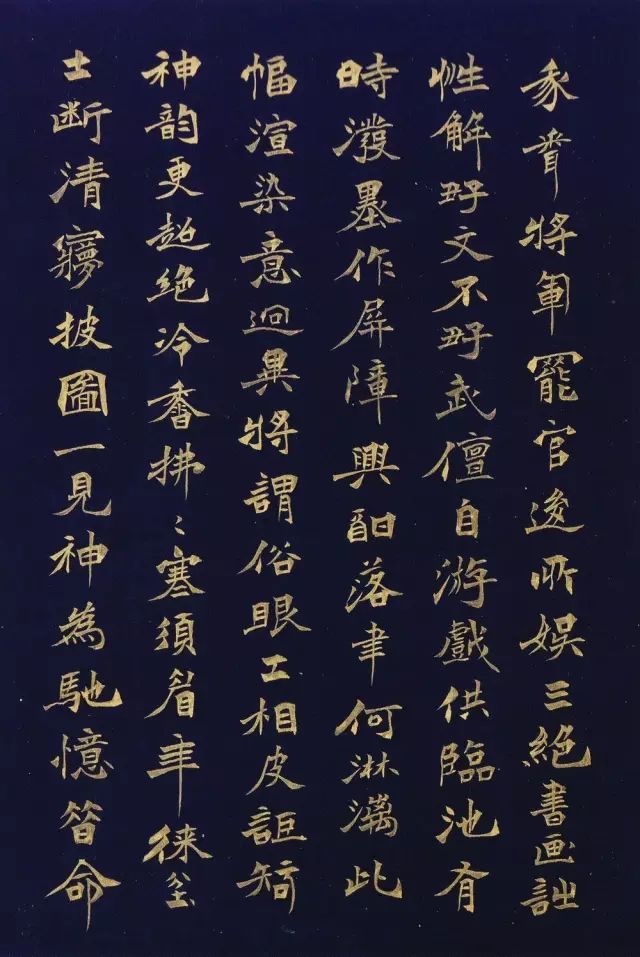 將軍罷官後所娱三絶書画詩
性解好文不好武儃自游戲供臨池有
時潑墨作屏障興酣落筆何淋漓此
幅渲染意迥異將謂俗眼工相皮詎知
神韵更超絶冷香拂〻寒須眉年徠尘
土断清夢披圖一見神為馳憶昔命